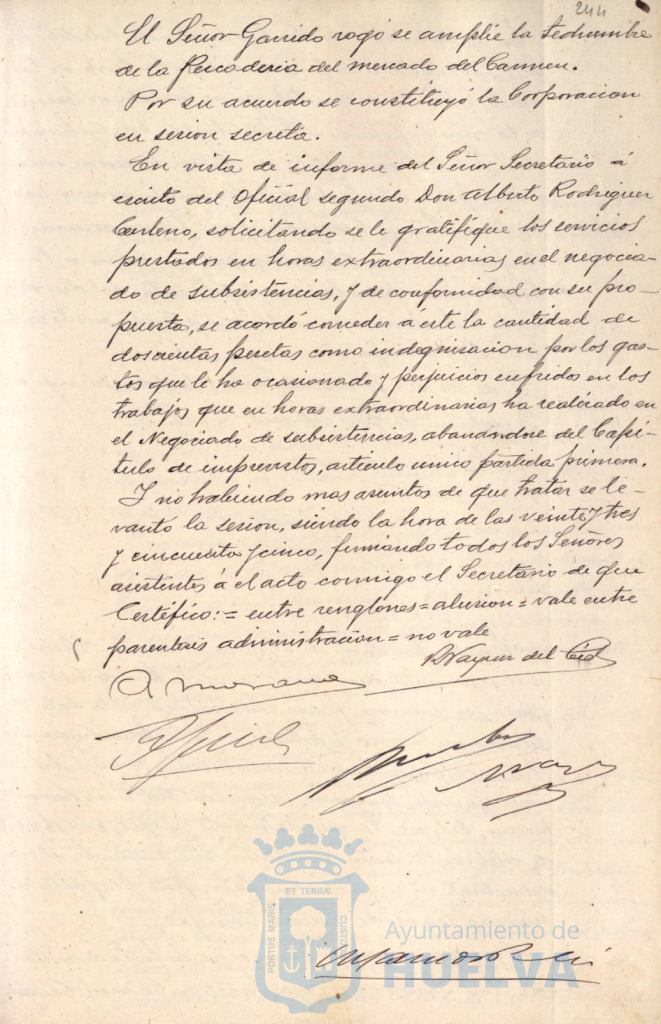 244
El Señor Garrido rogó se amplie la techumbre
de la Pescaderia del mercado del Carmen.
Por su acuerdo se constituyó la Corporacion
en sesion secreta.
En vista de informe del Señor Secretario á
escrito del Oficial segundo Don Alberto Rodriguez
Centeno, solicitando se le gratifique los servicios
prestados en horas extraordinarias en el negocia-
do de subsistencias, y de conformidad con su pro-
puesta, se acordó conceder á este la cantidad de
doscientas pesetas como indegnisacion por los gas-
tos que le ha ocasionado y perjuicios sufridos en los
trabajos que en horas extraordinarias ha realizado en
el Negociado de subsistencias, abonandose del Capi-
tulo de imprevistos, articulo unico partida primera.
Y no habiendo mas asuntos de que tratar se le-
vantó la sesion, siendo la hora de las veinte y tres
y cincuenta y cinco, firmando todos los Señores
asistentes á el acto conmigo el Secretario de que
Certéfico:= entre renglones= alusion= vale entre
parentesis administracion= no vale
del Cid
ET TERRÆ
PORTUS MARIS
CUSTO
Ayuntamiento de
HUELVA